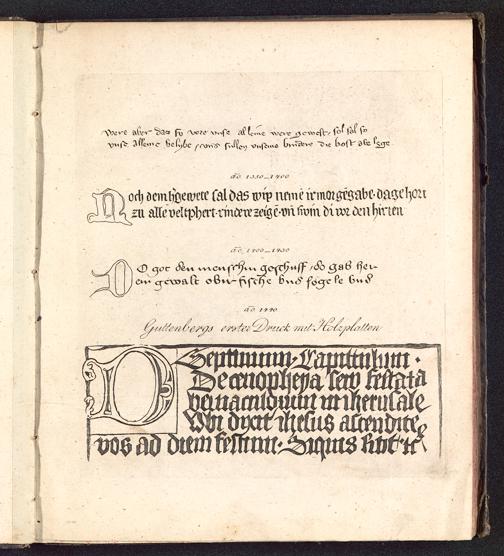 were aber das so were unse alleine were gewest, sol sal so
unse alleine belybe, uns sullen unseme brudere die bost abe lege.
ao 1350_1400
Noch dem h'gewete sal das wip neme ir morgēgabe·da ge hort
zu alle veltphert·rindere zeigē·vn̄ swin di vor den hirten
ao 1400_1430
DO got den menschin geschuff, do gab her
em gewalt obir fische vnd fogele vnd
ao 1440
Guttenbergs erster Druck mit Holzplatten
Septimum·Capitulum·
De cenophegia seu festa ta
bernaculorum in iherusale
Vbi dixit ihesus ascendite
vos ad diem festum·Siquis sitit·ic